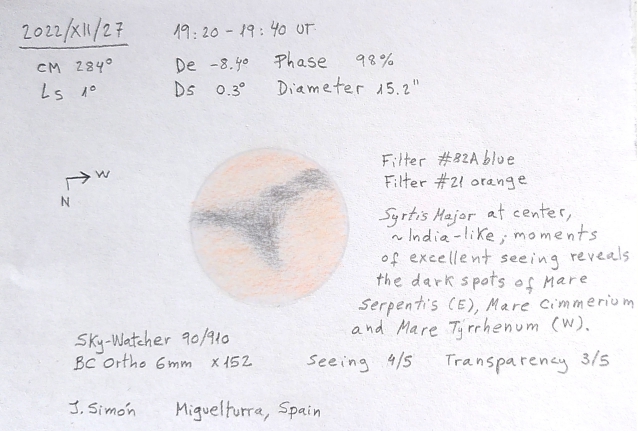 2022/XII/27 19:20-19:40 UT
CM 284° De -8.4° Phase 98%
Ls 1° Ds 0.3° Diameter 15.2"
W
N
Filter #82A blue
Filter #21 orange
Syrtis Major at center,
~India-like; moments
of excellent seeing reveals
the dark spots of Mare
Serpentis (E), Mare Cimmerium
and Mare Tyrrhenum (W).
Sky-Watcher 90/910
BC Ortho 6mm x152 Seeing 4/5 Transparency 3/5
J. Simón Miguelturra, Spain